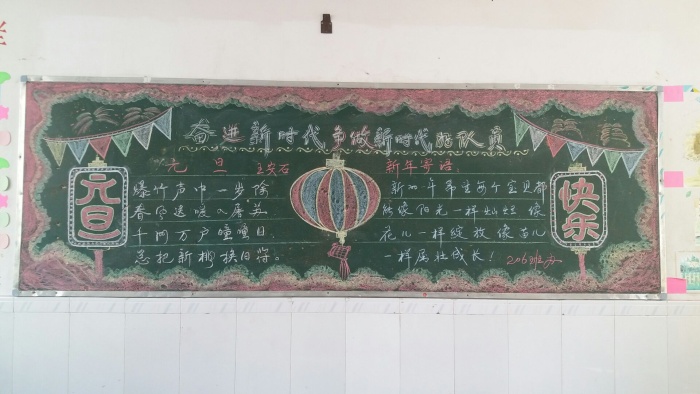 奋进新时代 争做新时代好队员
元旦
元旦 王安石
爆竹声中一岁除
春风送暖入屠苏
千门万户曈曈日
总把新桃换旧符。
新年寄语:
新的一年希望每个宝贝都
能像阳光一样灿烂 像
花儿一样绽放像苗儿
一样茁壮成长! 206班办
快乐